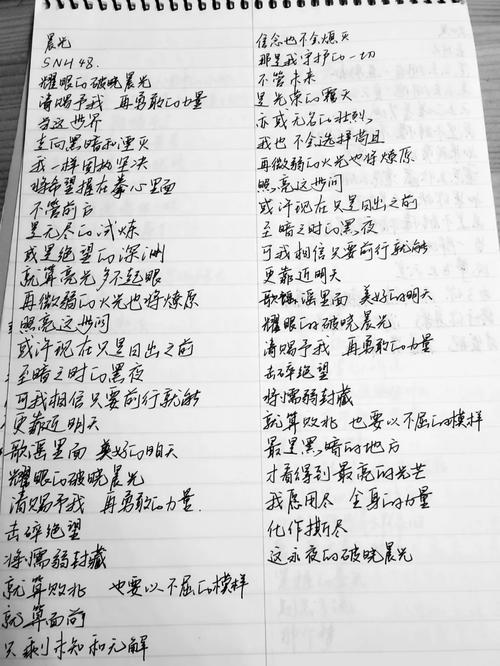 晨光
SNH48.
耀眼的破晓晨光
请赐予我 再勇敢的力量
当这世界
走向黑暗和湮灭
我一样固执坚决
将希望握在拳心里面
不管前方
是无尽的试炼
或是绝望的深渊
就算亮光多不起眼
再微弱的火光也将燎原
照亮这世间
或许现在只是日出之前
至暗之时的黑夜
可我相信只要前行就能
更靠近明天
歌谣里面 美好的明天
耀眼的破晓晨光
请赐予我 再勇敢的力量.
击碎绝望
将懦弱封藏
就算败北 也要以不屈的模样
就算面前
只剩未知和无解
信念也不会熄灭
那是我守护的一切
不管未来
是光荣的
亦或无名的壮烈
我也不会选择苟且
再微弱的火光也将燎原
照亮这世间
或许现在只是日出之前
至暗之时的黑夜
可我相信只要前行就能
更靠近明天
歌谣里面 美好的明天
耀眼的破晓晨光
请赐予我 再勇敢的力量
击碎绝望
将懦弱封藏
就算败北 也要以不屈的模样
最是黑暗的地方
才看得到最亮的光芒
我愿用尽 全身的力量
化作撕尽
这永夜的破晓晨光